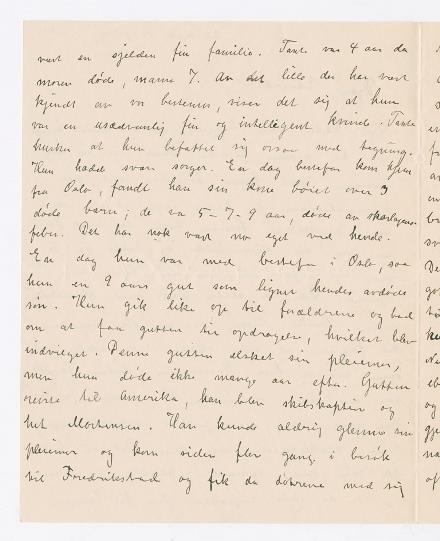 vært en sjelden fin familie. Tante var 4 aar da
moren døde, mama 7. An det lille der har vært
kjendt av vor bestemor, viser det sig at hun
var en usædvanlig fin og intelligent kvinde. Tante
husker at hun befattet sig ogsaa med tegning.
Hun hadde svare sorger. En dag bestefar kom hjem
fra Oslo, fandt han sin kone bøiet over 3
døde barn; de va 5-7-9 aar, døde av skarlagens-
feber. Det har nok vært noe eget ved hende.
En dag hun var med bestefar i Oslo, saa
hun en 9 aars gut som ligner hendes avdøde
søn. Hun gik like op til forældrene og bad
om at faa gutten til opdragelse, hvilket blev
indvilget. Denne gutten elsket sin pleiemor,
men hun døde ikke mange aar efter. Gutten
reiste til Amerika, han blev skibskaptein og
het Mortensen. Han kunde aldrig glemme sin
pleiemor og kom siden fler gang i besøk
til Fredriksstad og fik da døtrene med sig